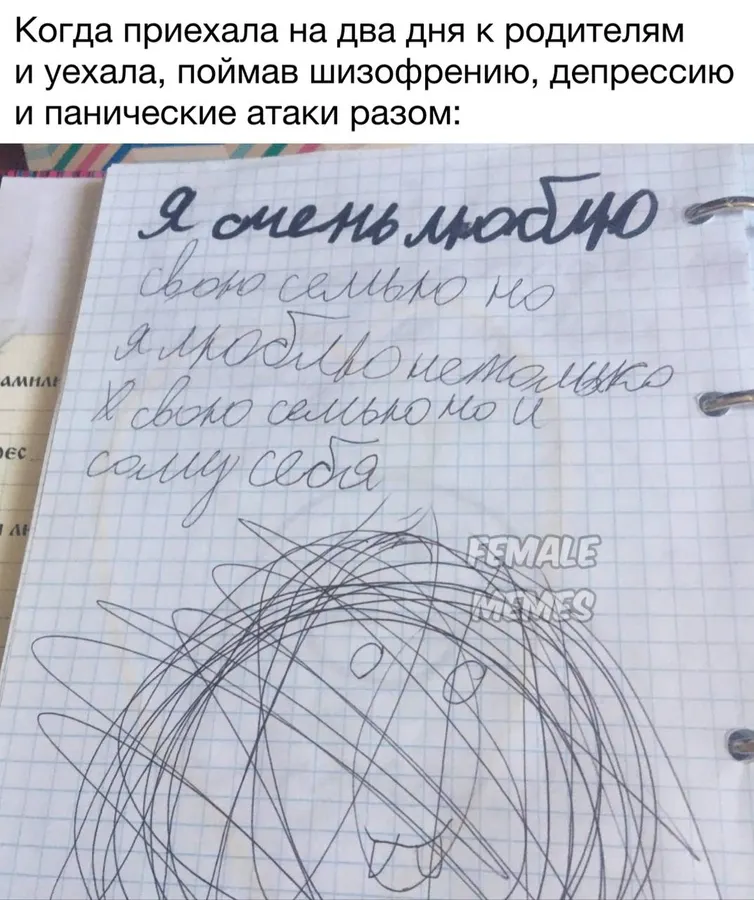 Когда приехала на два дня к родителям
и уехала, поймав шизофрению, депрессию
и панические атаки разом:
Я очень люблю
свою семью но
я люблю нетолько
свою семью но и
саму себя
FEMALE
MEMES